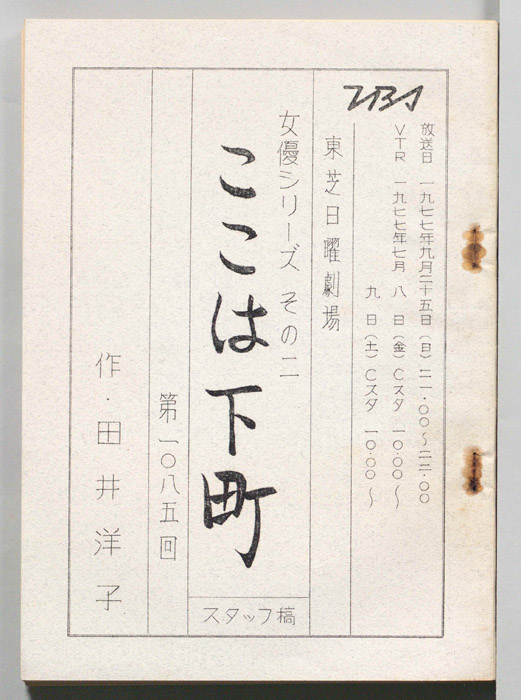 TBS
放送日 一九七七年九月二十五日(日)二一.〇〇〜二二.〇〇
VTR 一九七七年七月 八 日(金)Cスタ 一〇.〇〇〜
九 日(土)Cスタ 一〇.〇〇〜
東芝日曜劇場
女優シリーズ その二
ここは下町
スタッフ稿
第一〇八五回
作・田井洋子